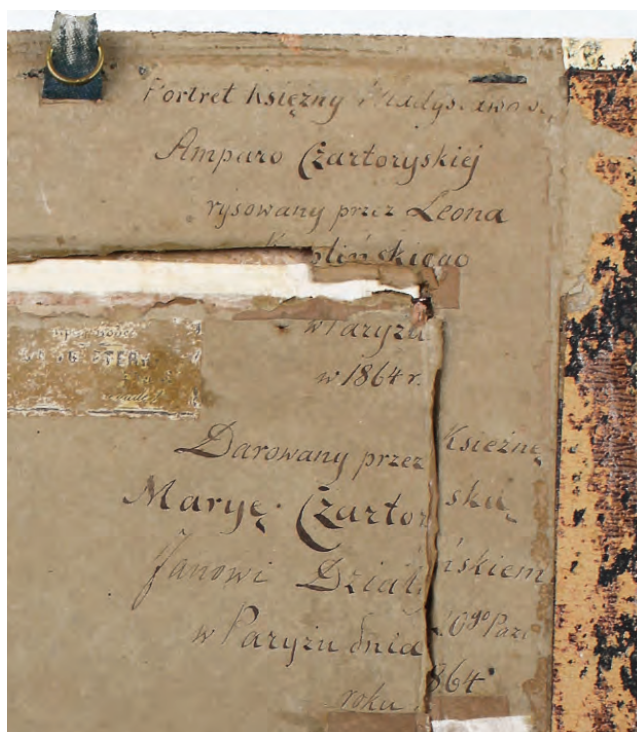 Portret Księżny Władysławowej
Amparo Czartoryskiej
rysowany przez Leona
w Paryżu
w 1864 r.
Darowany przez Księżnę
Maryę Czartor ską
Janowi Dział ńskiem
w Paryżu dnia
roku 864